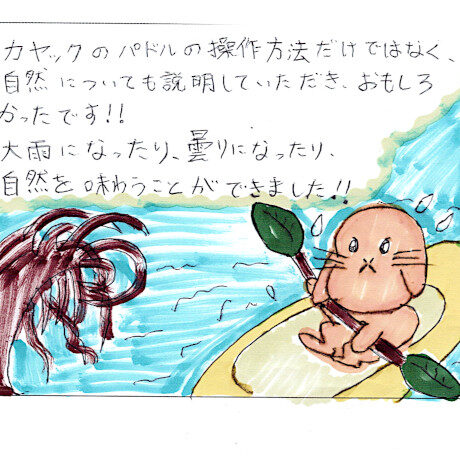 カヤックのパドルの操作方法だけではなく、
自然についても説明していただき、おもしろ
かったです!!
大雨になったり、曇りになったり、
自然を味わうことができました!!